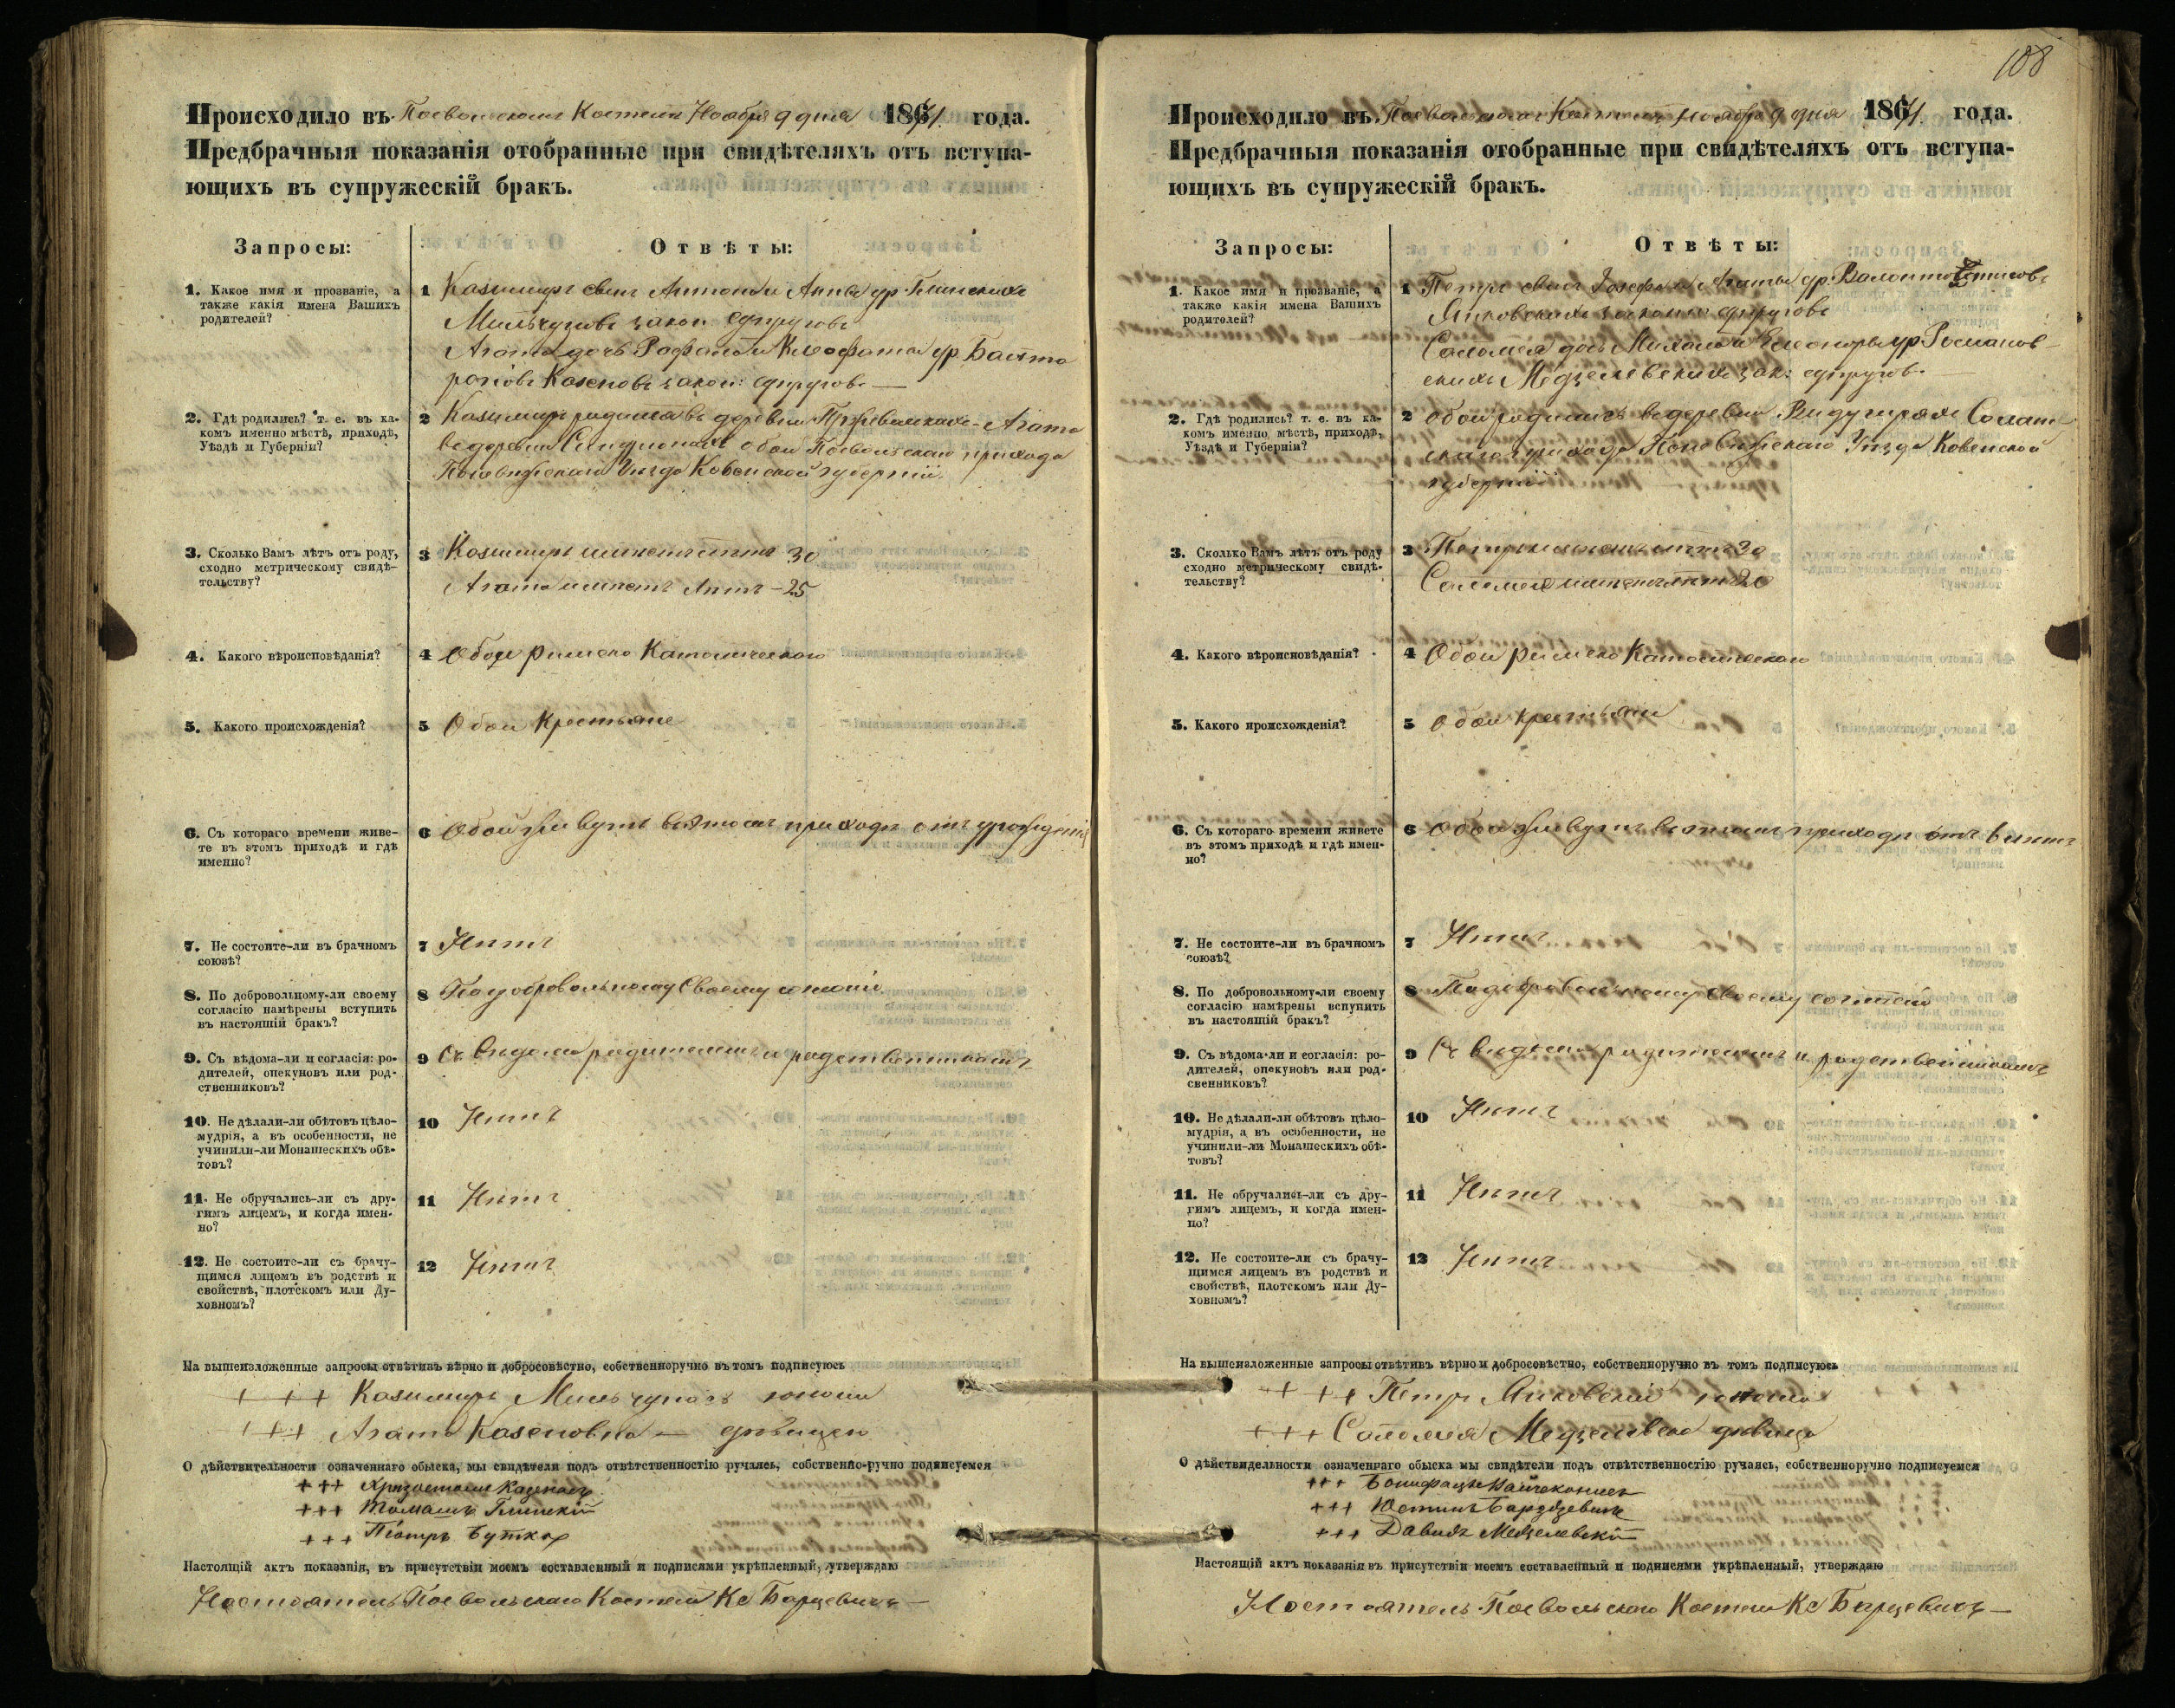 Происходило въ Посвольскомъ Костелѣ Ноября 9 дня 1871 года.
Предбрачныя показанія отобранные при свидѣтеляхъ отъ вступа-
ющихъ въ супружескій бракъ.
Запросы:
Отвѣты:
1. Какое имя и прозваніе, а
также какія имена Вашихъ
родителей?
1 Казимиръ сынъ Антона и Анны ур. Глинскихъ
закон супруговъ
Агата дочь Рафала и Клеофаты ур.
закон: супруговъ —
2. Гдѣ родились? т. е. въ ка-
комъ именно мѣстѣ, приходѣ,
Уѣздѣ и Губерніи?
2 Казимиръ родился въ деревни Агата
въ деревни обои Посвольскаго прихода
Поневѣжскаго Уѣзда Ковенской губерніи.
3. Сколько Вамъ лѣтъ отъ роду,
сходно метрическому свидѣ-
тельству?
3 Казимиръ имѣетъ лѣтъ 30
Агата имѣетъ лѣтъ - 25
4. Какого вѣроисповѣданія?
4 Обои римско Католическаго
5. Какого происхожденія?
5 Обои Крестьяне
6. Съ котораго времени живе-
те въ этомъ приходѣ и гдѣ
именно?
6 Обои живутъ въ этомъ приходѣ отъ урожденія
7. Не состоите-ли въ брачномъ
союзѣ?
7 Нѣтъ
8. По добровольному-ли своему
согласію намѣрены вступить
въ настоящій бракъ?
8 По добровольному Своему согласію
9. Съ вѣдома-ли и согласія: ро-
дителей, опекуновъ или род-
ственниковъ?
9 Съ вѣдома родителей и родственниковъ
10. Не дѣлали-ли обѣтовъ цѣло-
мудрія, а въ особенности, не
учинили-ли Монашескихъ обѣ-
товъ?
10 Нѣтъ
11. Не обручались-ли съ дру-
гимъ лицемъ, и когда имен-
но?
11 Нѣтъ
12. Не состоите-ли съ брачу-
щимся лицемъ въ родствѣ и
свойствѣ, плотскомъ или Ду-
ховномъ?
12 Нѣтъ
На вышеизложенные запросы отвѣтивъ вѣрно и добросовѣстно, собственноручно въ томъ подписуюсь
+ + + Казимиръ Мильчунасъ юноша
+ + + Агата Казеновна — дѣвица
О дѣйствительности означеннаго обыска, мы свидѣтели подъ отвѣтственностію ручаясь, собственно-ручно подписуемся
+++ Хризостомъ Казенасъ
+++ Томашъ Глинскій
+++ Піотръ Буткусъ
Настоящій актъ показанія, въ присутствіи моемъ составленный и подписями укрѣпленный, утверждаю
Настоятель Посвольскаго Костела Кс Барцевичъ —
108
Происходило въ Посвольскомъ Костелѣ Ноября 9 дня 1871 года.
Предбрачныя показанія отобранные при свидѣтеляхъ отъ вступа-
ющихъ въ супружескій бракъ.
Запросы:
Отвѣты:
1. Какое имя и прозваніе, а
также какія имена Вашихъ
родителей?
1 Петръ сынъ Іосефа и Агаты ур.
Янковскихъ законн супруговъ
Саломея дочь Михала и Елеоноры ур Романов-
скихъ Медзелевскихъ зак: супругов.
2. Гдѣ родились? т. е. въ ка-
комъ именно мѣстѣ, приходѣ,
Уѣздѣ и Губерніи?
2 обои родились въ деревни Салат-
скаго прихода Поневѣжскаго Уѣзда Ковенской
губерніи
3. Сколько Вамъ лѣтъ отъ роду
сходно метрическому свидѣ-
тельству?
3 Петръ имѣетъ лѣтъ 30
Саломея имѣетъ лѣтъ 20
4. Какого вѣроисповѣданія?
4 Обои римско Католическаго
5. Какого происхожденія?
5 Обои крестьяни
6. Съ котораго времени живете
въ этомъ приходѣ и гдѣ имен-
но?
6 Обои живутъ въ этомъ приходѣ отъ 6 лѣтъ
7. Не состоите-ли въ брачномъ
союзѣ?
7 Нѣтъ
8. По добровольному-ли своему
согласію намѣрены вспупить
въ настоящій бракъ?
8 По добровольному своему согласію
9. Съ вѣдома-ли и согласія: ро-
дителей, опекуновъ или род-
свенниковъ?
9 Съ вѣдома родителей и родственниковъ
10. Не дѣлали-ли обѣтовъ цѣло-
мудрія, а въ особенности, не
учинили-ли Монашескихъ обѣ-
товъ?
10 Нѣтъ
11. Не обручались-ли съ дру-
гимъ лицемъ, и когда имен-
но?
11 Нѣтъ
12. Не состоите-ли съ брачу-
щимся лицемъ въ родствѣ и
свойствѣ, плотскомъ или Ду-
ховномъ?
12 Нѣтъ
На вышеизложенные запросы отвѣтивъ вѣрно и добросовѣстно, собственноручно въ томъ подписуюсь
+ ++ Петръ Янковскій юноша
+++ Саломея Медзелевска дѣвица
О дѣйствидельности означеннаго обыска мы свидѣтели подъ отвѣтственностію ручаясь, собственноручно подписуемся
+++ Бонифацъ
+++ Юстинъ
+++ Давидъ Медзелевскій
Настоящій актъ показанія въ присутствіи моемъ составленный и подписями укрѣпленный, утверждаю
Настоятель Посвольскаго Костела Кс Барцевичъ —